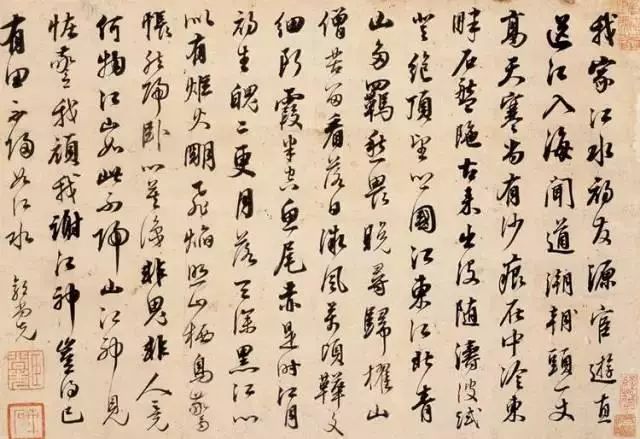 我家江水初發源宦遊直
送江入海聞道潮頭一丈
高天寒尚有沙痕在中泠
畔石盤陁古來出沒隨濤波試
登絕頂望鄉國江東江北青
山多羈愁畏晚尋歸檝山
僧苦留看落日微風萬頃鞾文
細斷霞半空魚尾赤是时江月
初生魄二更月落天深黑江心
似有炬火明飛焰照山栖鳥驚
悵然歸卧心莫識非鬼非人竟
何物江山如此不歸山江神見
怪驚我頑我謝江神豈得已
有田不歸如江水 郭尚先